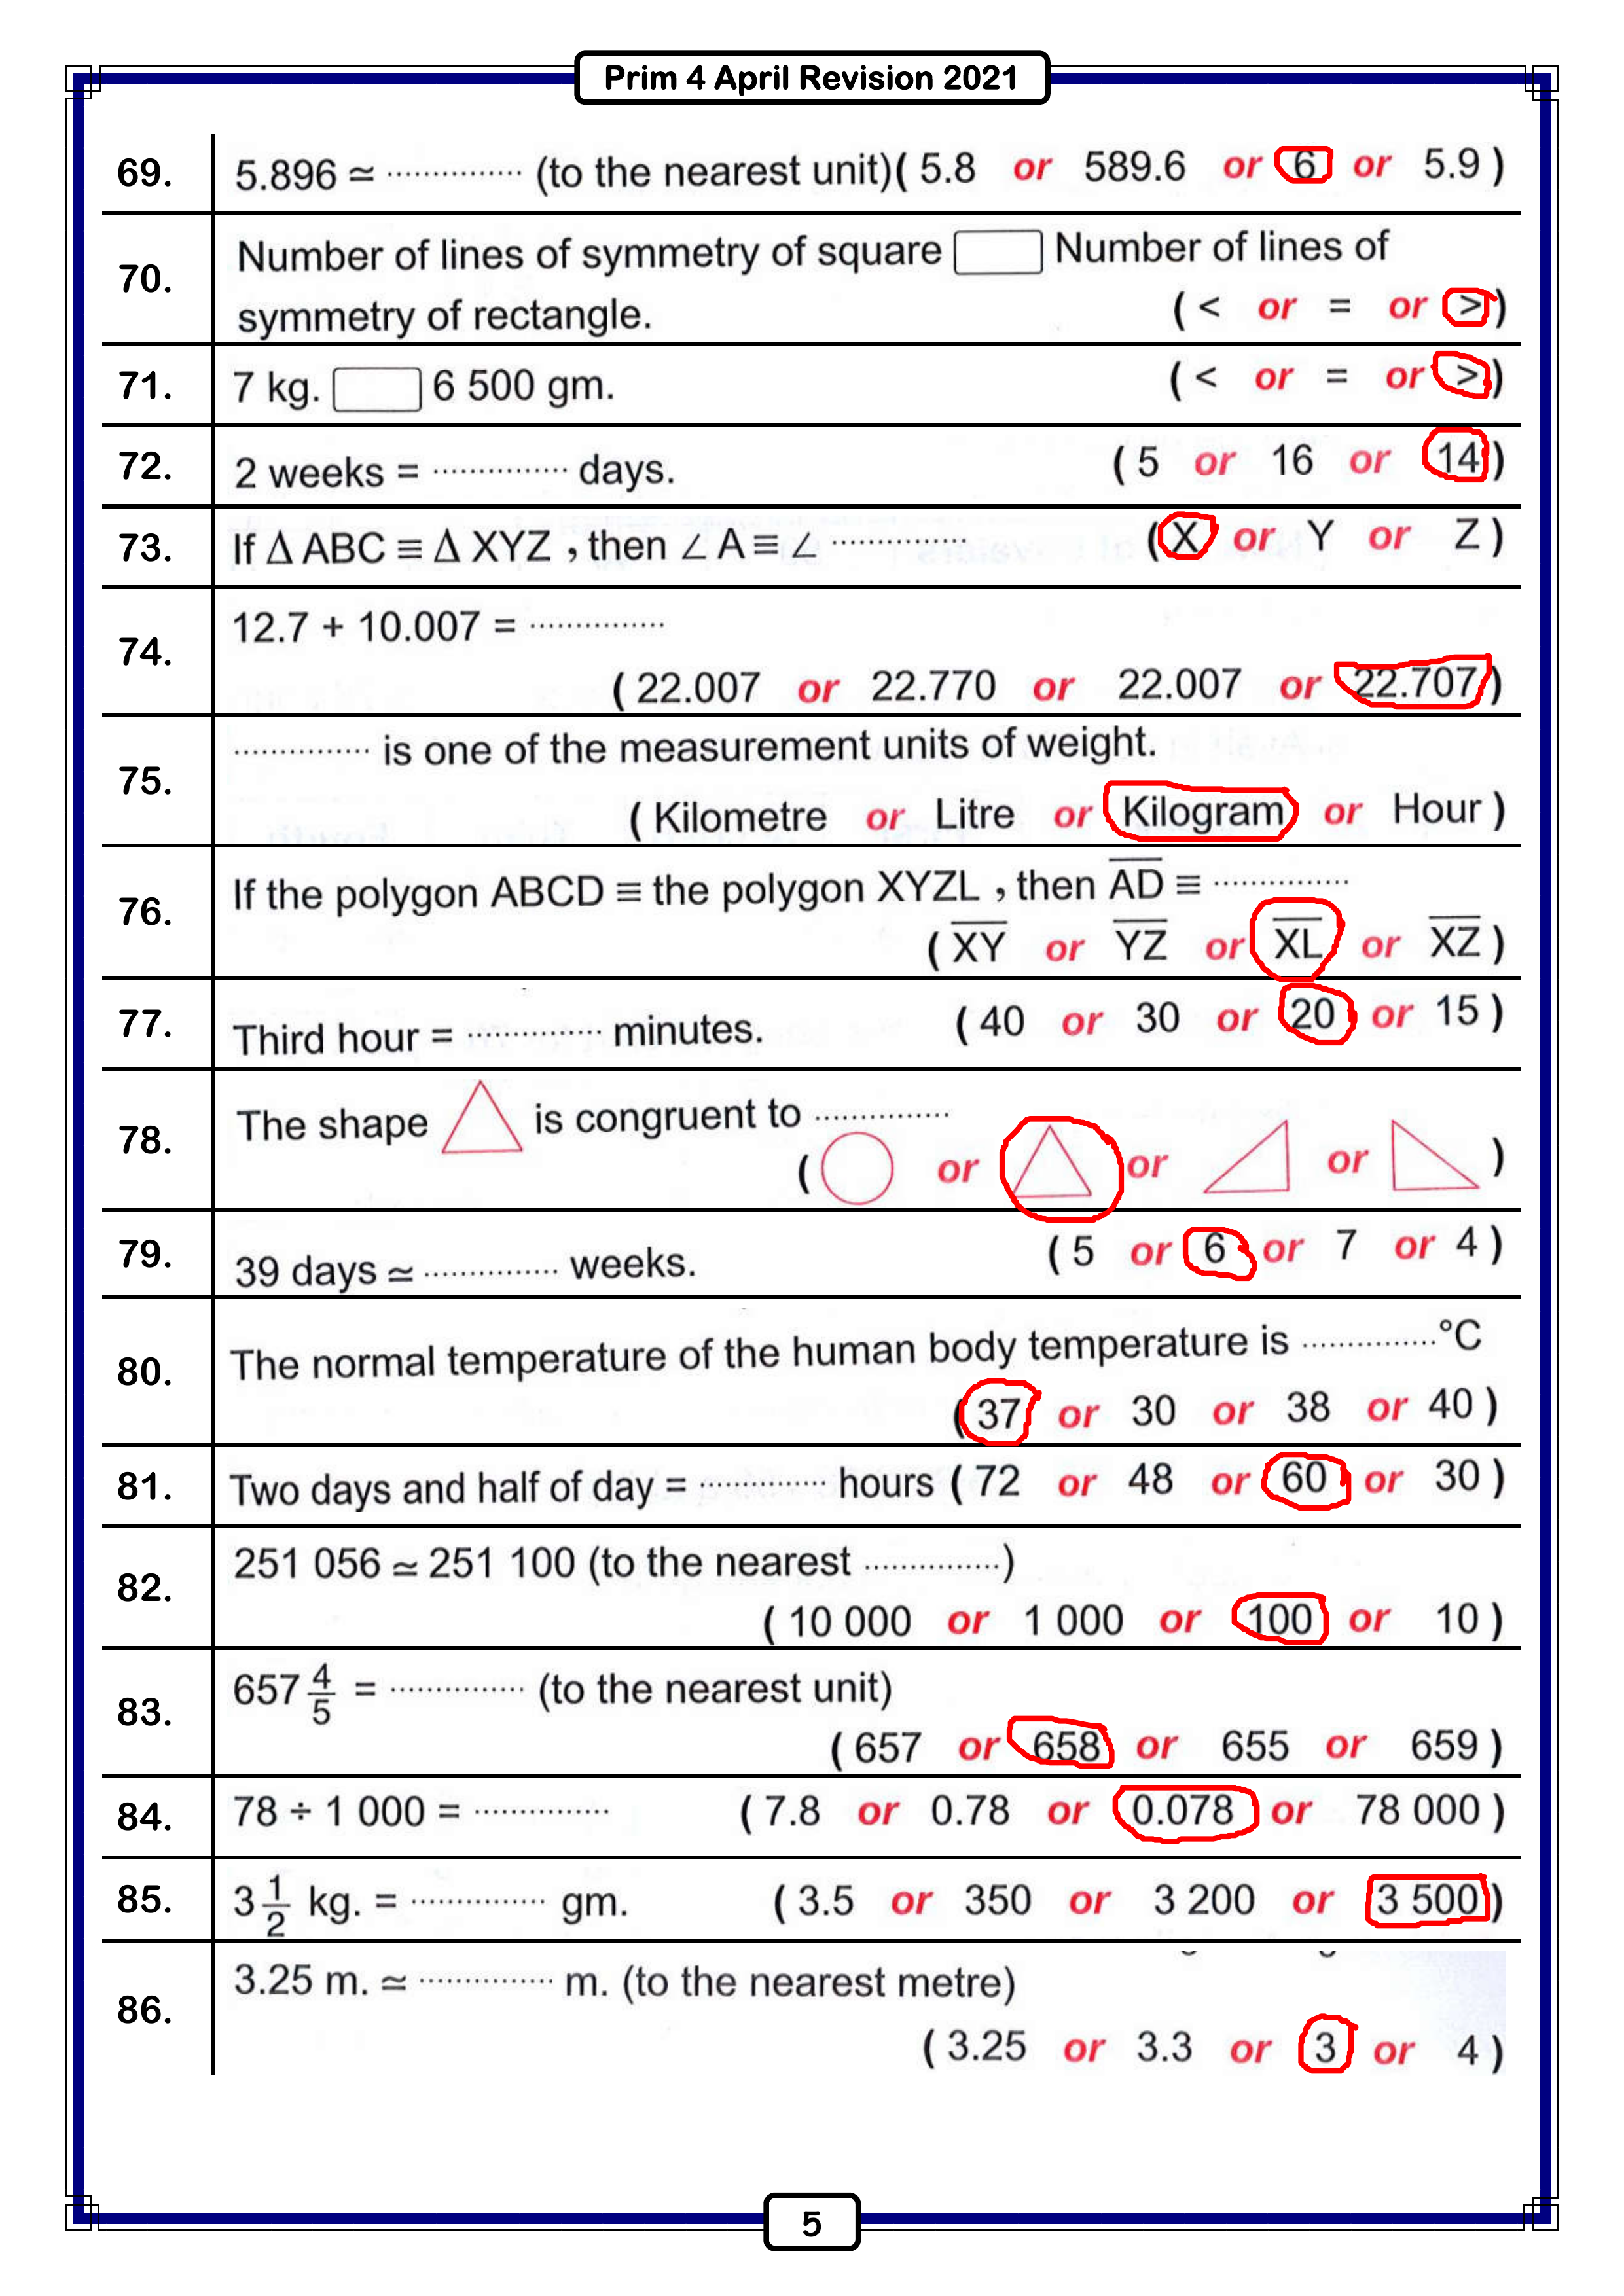 Prim 4 April Revision 2021
69. 5.896 ≃ ............... (to the nearest unit)( 5.8 or 589.6 or 6 or 5.9 )
70. Number of lines of symmetry of square Number of lines of
symmetry of rectangle. ( < or = or > )
71. 7 kg. 6 500 gm. ( < or = or > )
72. 2 weeks = ............... days. ( 5 or 16 or 14 )
73. If Δ ABC ≡ Δ XYZ , then ∠ A ≡ ∠ ............... ( X or Y or Z )
74. 12.7 + 10.007 = ...............
( 22.007 or 22.770 or 22.007 or 22.707 )
75. ............... is one of the measurement units of weight.
( Kilometre or Litre or Kilogram or Hour )
76. If the polygon ABCD ≡ the polygon XYZL , then A̅D̅ ≡ ...............
( X̅Y̅ or Y̅Z̅ or X̅L̅ or X̅Z̅ )
77. Third hour = ............... minutes. ( 40 or 30 or 20 or 15 )
78. The shape is congruent to ...............
( or or or )
79. 39 days ≃ ............... weeks. ( 5 or 6 or 7 or 4 )
80. The normal temperature of the human body temperature is ...............°C
( 37 or 30 or 38 or 40 )
81. Two days and half of day = ............... hours ( 72 or 48 or 60 or 30 )
82. 251 056 ≃ 251 100 (to the nearest ...............)
( 10 000 or 1 000 or 100 or 10 )
83. 657 4/5 = ............... (to the nearest unit)
( 657 or 658 or 655 or 659 )
84. 78 ÷ 1 000 = ............... ( 7.8 or 0.78 or 0.078 or 78 000 )
85. 3 1/2 kg. = ............... gm. ( 3.5 or 350 or 3 200 or 3 500 )
86. 3.25 m. ≃ ............... m. (to the nearest metre)
( 3.25 or 3.3 or 3 or 4 )
5